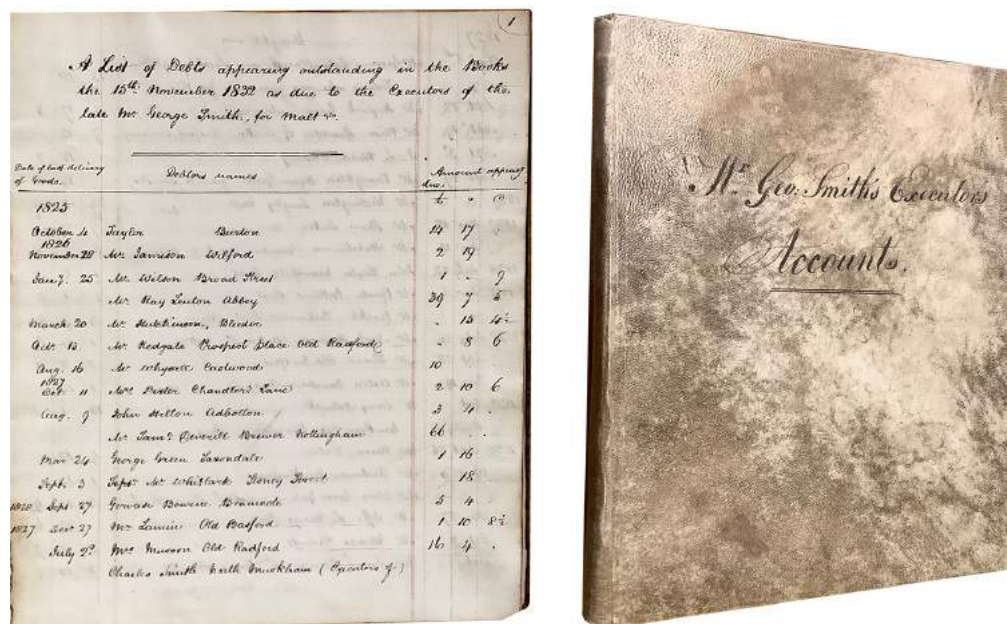 1
A List of Debts appearing outstanding in the Books
the 15th November 1832 as due to the Executors of the
late Mr George Smith, for Malt &c.
Date of last delivery of Goods. Debtors names Amount appearg due.
1825 £ " "
October 4 Taylor Burton 14 17 .
1826
November 28 Mr Jamison Wilford 2 19
Jany. 25 Mr Wilson Broad Street 1 . 9
Mr Hay Lenton Abbey 39 7 5
March 20 Mr Hutchinson, . 15 4½
Octr 13 Mr Redgate Prospect Place Old Radford . 8 6
Aug. 16 Mr 10
1827
Oct. 11 Mrs Dexter Chandlers Lane 2 10 6
Aug. 9 John Hilton Adbolton 3 4 .
Mr Saml Deverill Brewer Nottingham 66 . .
Mar 24 George Green Saxondale 1 16
Septr 3 Mr Whitlark Stoney Street 18
Sept 27 Gervase Bourne Bramcote 5 4 .
1827 27 Mr Lamin Old Basford 1 10 8½
July 2d Mrs Musson Old Radford 16 4 .
Charles Smith North Muskham (Executors of)
Mr Geo: Smith's Executors
Accounts.